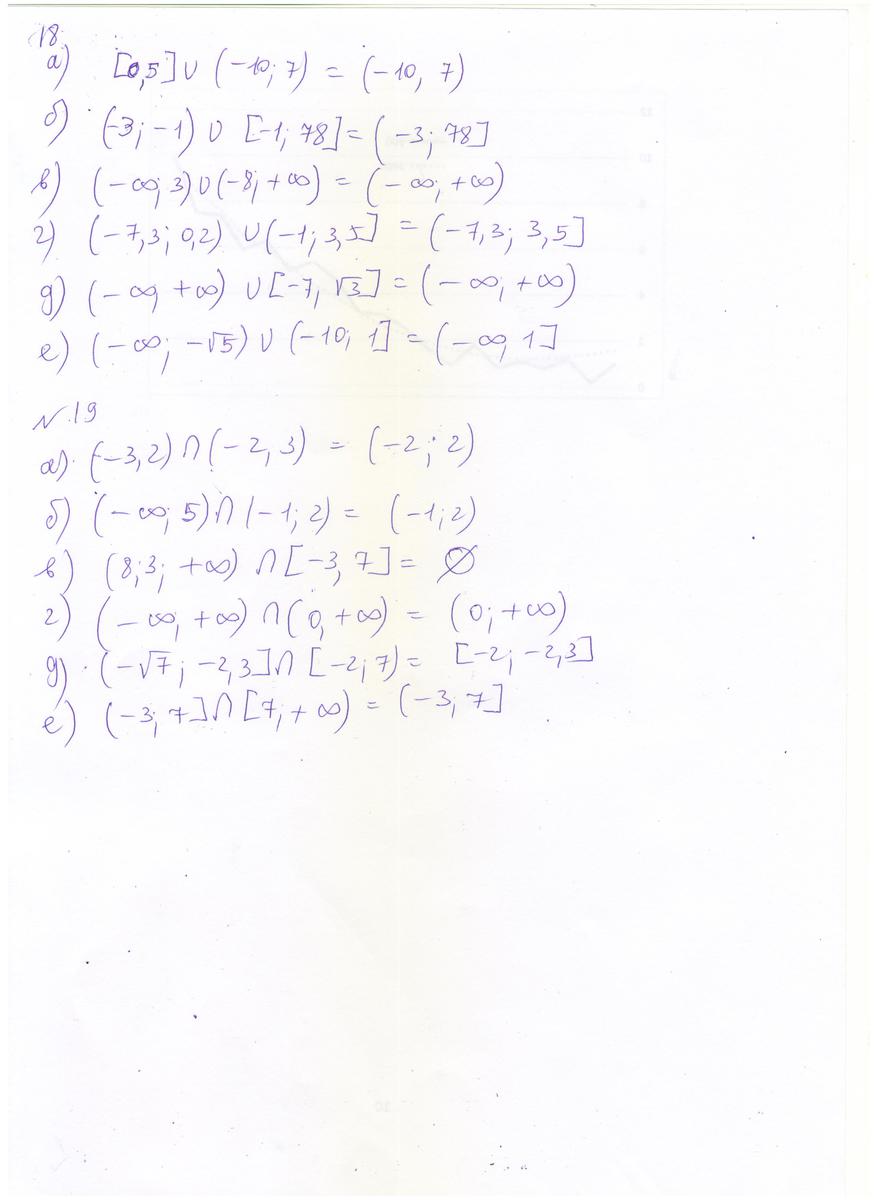 18.
а) [0,5] ∪ (-10; 7) = (-10, 7)
б) (-3; -1) ∪ [-1; 78] = (-3; 78]
в) (-∞; 3) ∪ (-8; +∞) = (-∞; +∞)
г) (-7,3; 0,2) ∪ (-1; 3,5] = (-7,3; 3,5]
д) (-∞, +∞) ∪ [-7, √3] = (-∞; +∞)
е) (-∞; -√5) ∪ (-10; 1] = (-∞, 1]
N.19
а) (-3,2) ∩ (-2,3) = (-2; 2)
б) (-∞; 5) ∩ (-1; 2) = (-1; 2)
в) (8;3; +∞) ∩ [-3, 7] = ∅
г) (-∞; +∞) ∩ (0, +∞) = (0; +∞)
д) (-√7; -2,3] ∩ [-2; 7) = [-2; -2,3]
е) (-3; 7] ∩ [7; +∞) = (-3, 7]